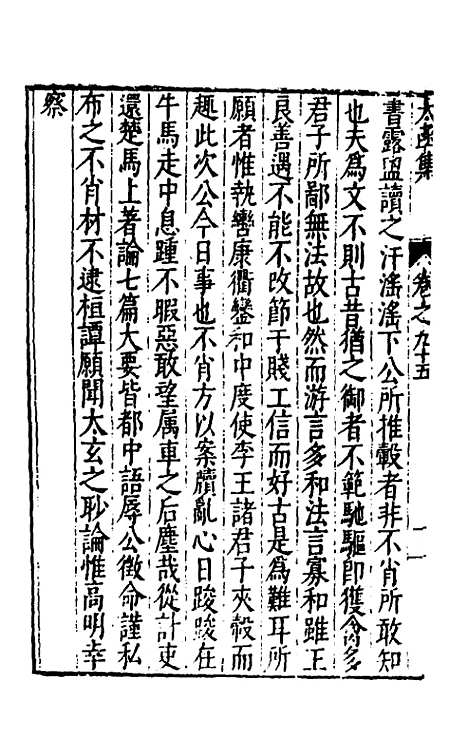 太函集 卷之九十五 一
書露盥讀之汗滛滛下公所推轂者非不肖所敢知
也夫為文不則古昔猶之御者不範馳驅即獲禽多
君子所鄙無法故也然而游言多和法言寡和雖王
良善遇不能不改節于賤工信而好古是為難耳所
願者惟執轡康衢鑾和中度使李王諸君子夾轂而
趣此次公今日事也不肖方以案牘亂心日踆踆在
牛馬走中息踵不暇惡敢望属車之后塵哉從計吏
還楚馬上著論七篇大要皆都中語辱公徵命謹私
布之不肖材不逮桓譚願聞太玄之眇論惟高明幸
察